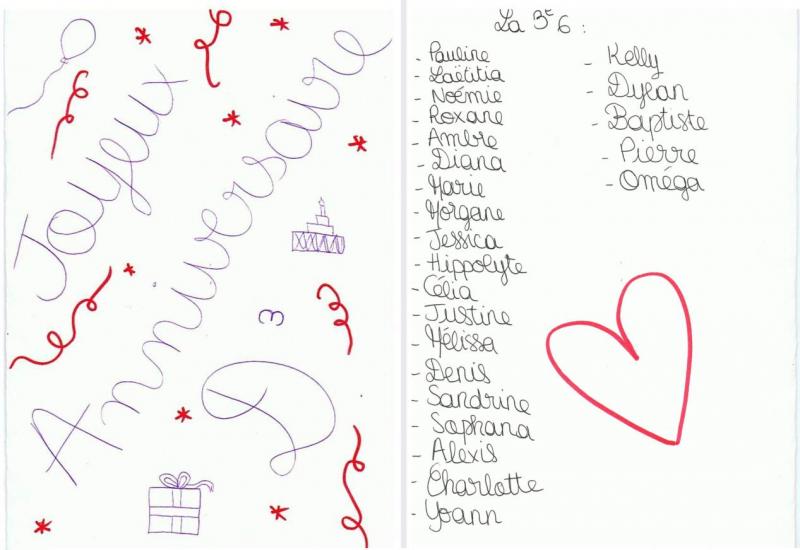 Joyeux
Anniversaire
3
La 3e 6 :
- Pauline
- Laëtitia
- Noémie
- Roxane
- Ambre
- Diana
- Marie
- Morgane
- Jessica
- Hippolyte
- Célia
- Justine
- Mélissa
- Denis
- Sandrine
- Sophana
- Alexis
- Charlotte
- Yoann
- Kelly
- Dylan
- Baptiste
- Pierre
- Oméga